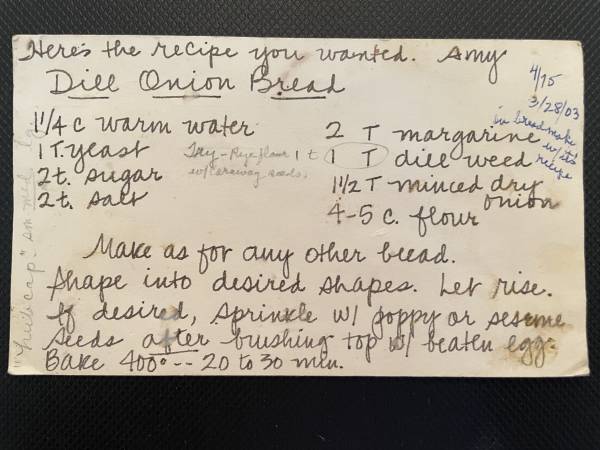 Here's the recipe you wanted. Amy
Dill Onion Bread
4/75
3/28/03
in breadmaker
w/ its
recipe
1 1/4 c warm water
1 T. yeast
2 t. sugar
2 t. salt
Try - Rye flour 1 t
w/ caraway seeds.
2 T margarine
1 T dill weed
1 1/2 T minced dry
onion
4-5 c. flour
Make as for any other bread.
Shape into desired shapes. Let rise.
If desired, sprinkle w/ poppy or sesame
seeds after brushing top w/ beaten egg.
Bake 400° -- 20 to 30 min.